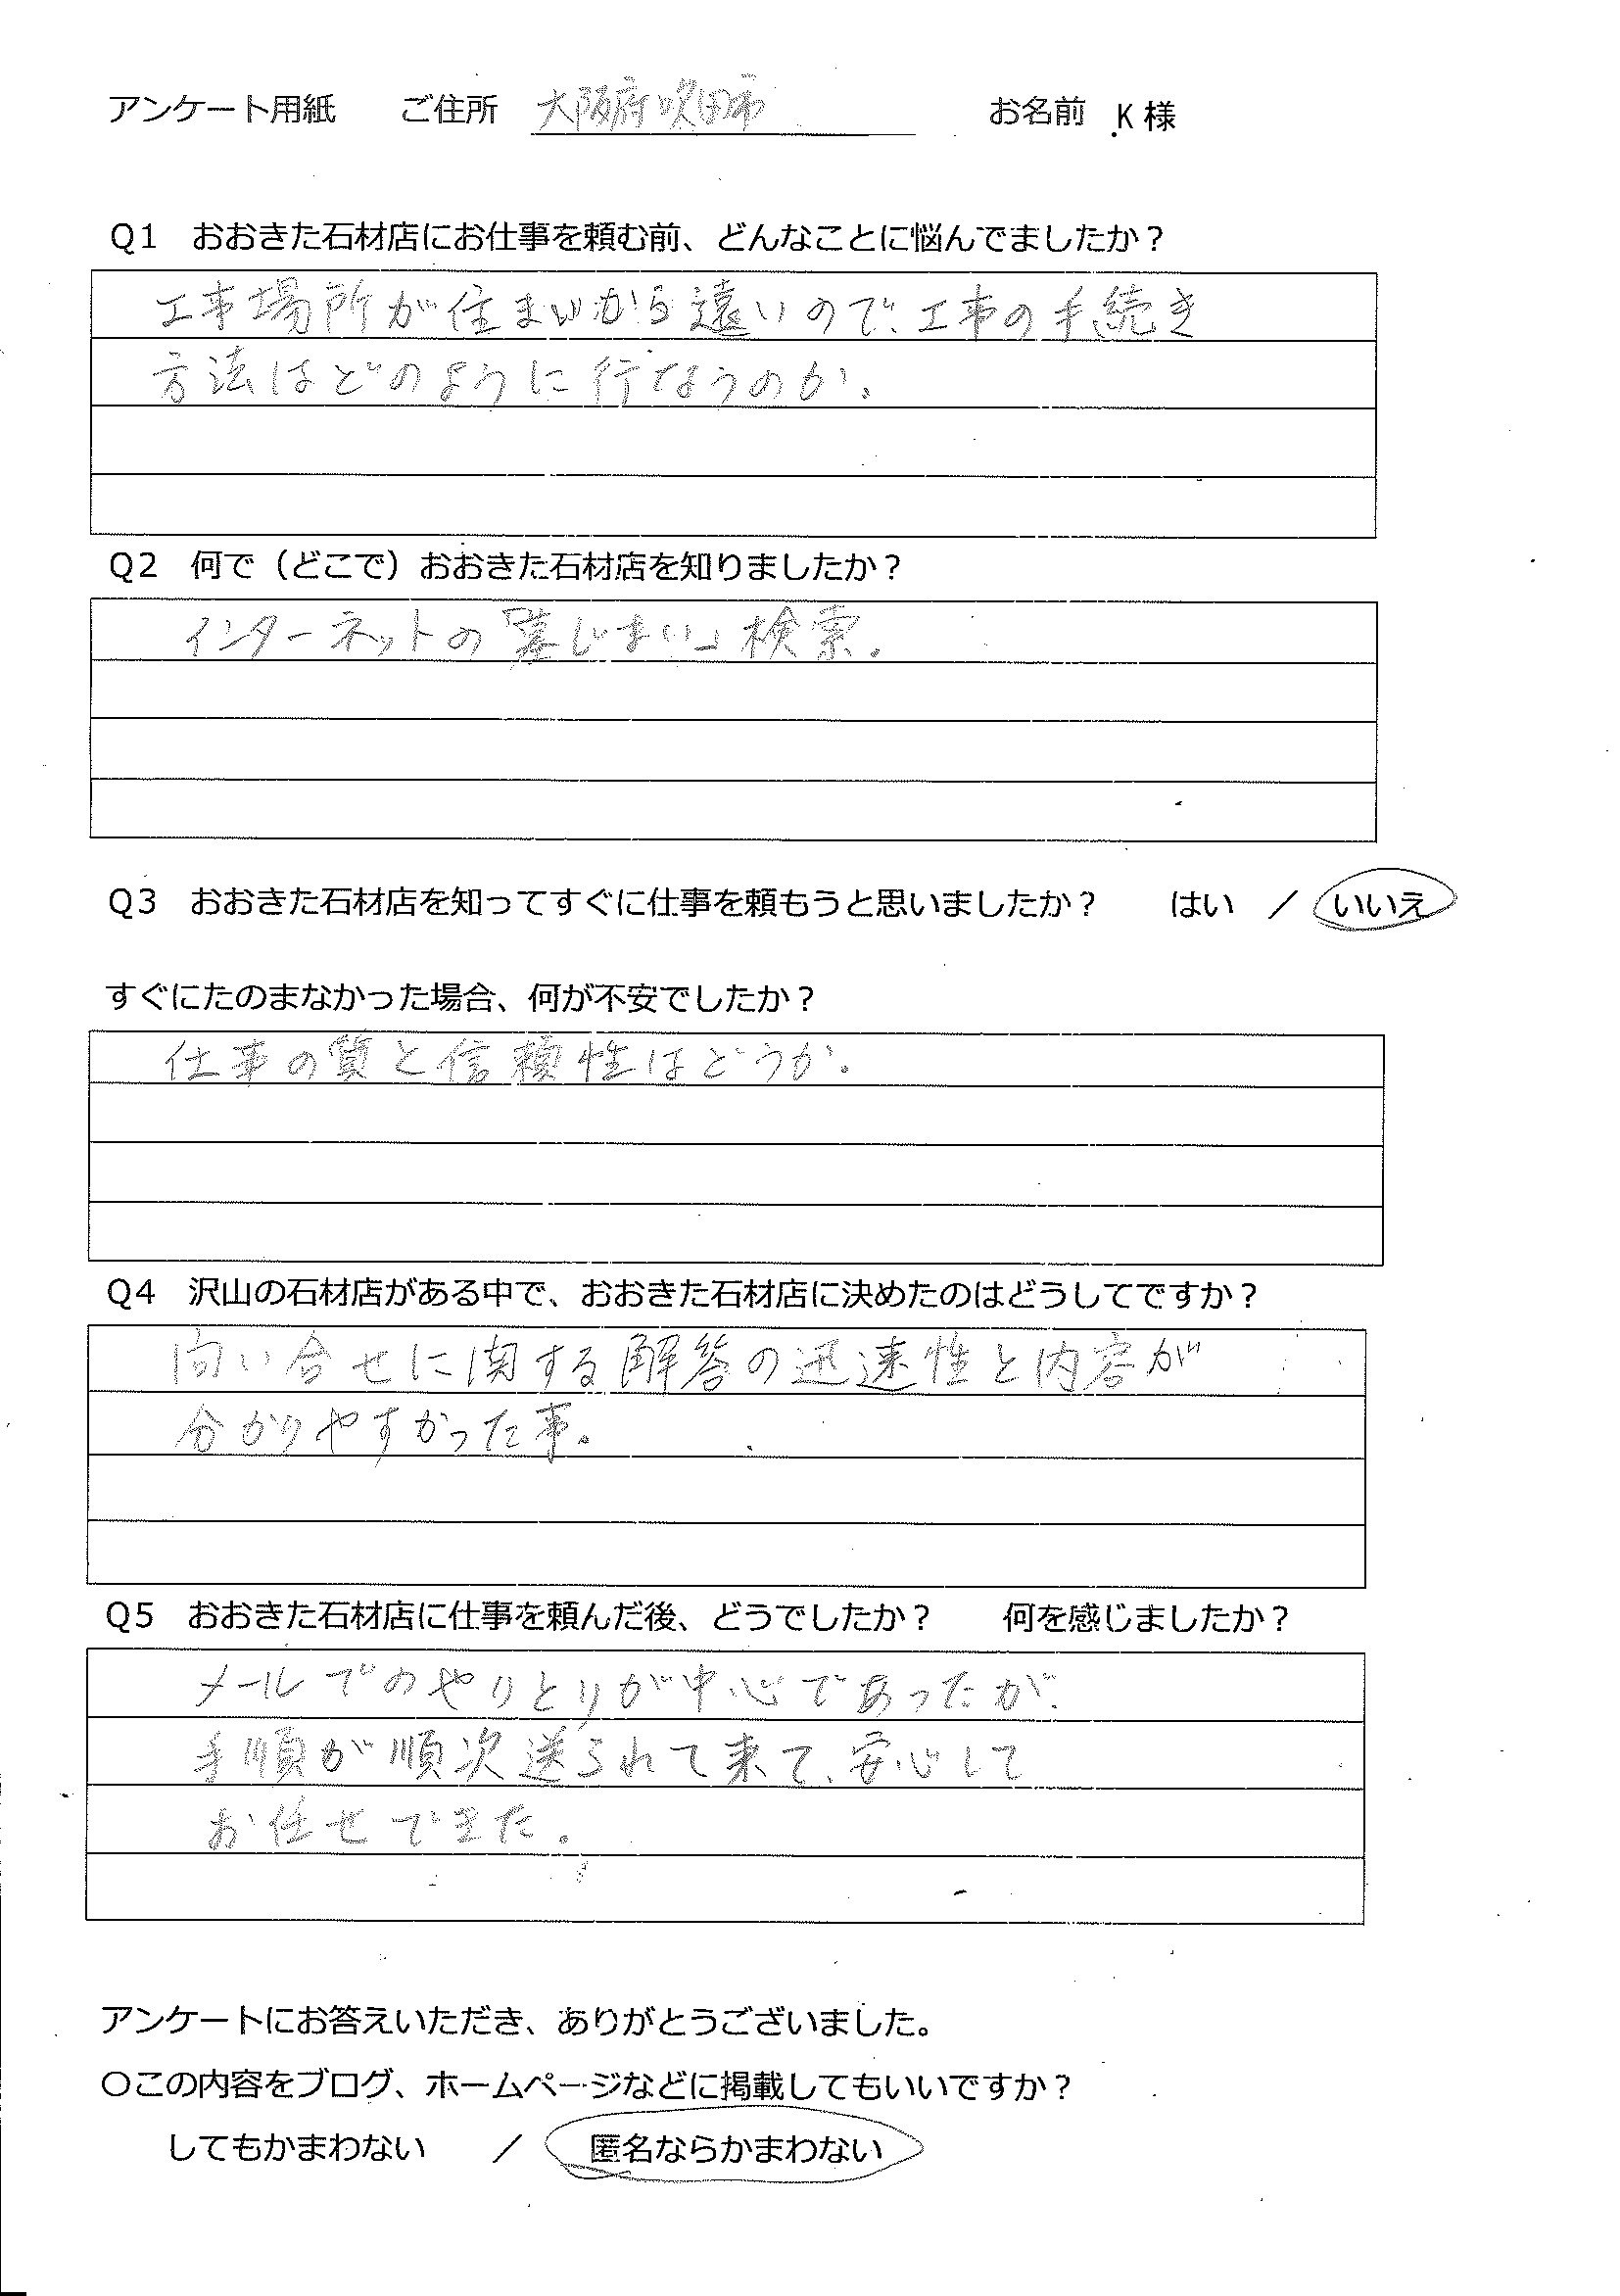 アンケート用紙　ご住所　大阪府吹田市　お名前　K様
Q1　おおきた石材店にお仕事を頼む前、どんなことに悩んでましたか？
工事場所が住まいから遠いので、工事の手続き
方法はどのように行なうのか。
Q2　何で（どこで）おおきた石材店を知りましたか？
インターネットの「墓じまい」検索。
Q3　おおきた石材店を知ってすぐに仕事を頼もうと思いましたか？　はい　／　いいえ
すぐにたのまなかった場合、何が不安でしたか？
仕事の質と信頼性はどうか。
Q4　沢山の石材店がある中で、おおきた石材店に決めたのはどうしてですか？
問い合せに関する解答の迅速性と内容が
分かりやすかった事。
Q5　おおきた石材店に仕事を頼んだ後、どうでしたか？　何を感じましたか？
メールでのやりとりが中心であったが、
手順が順次送られて来て、安心して
お任せできた。
アンケートにお答えいただき、ありがとうございました。
〇この内容をブログ、ホームページなどに掲載してもいいですか？
してもかまわない　／　匿名ならかまわない